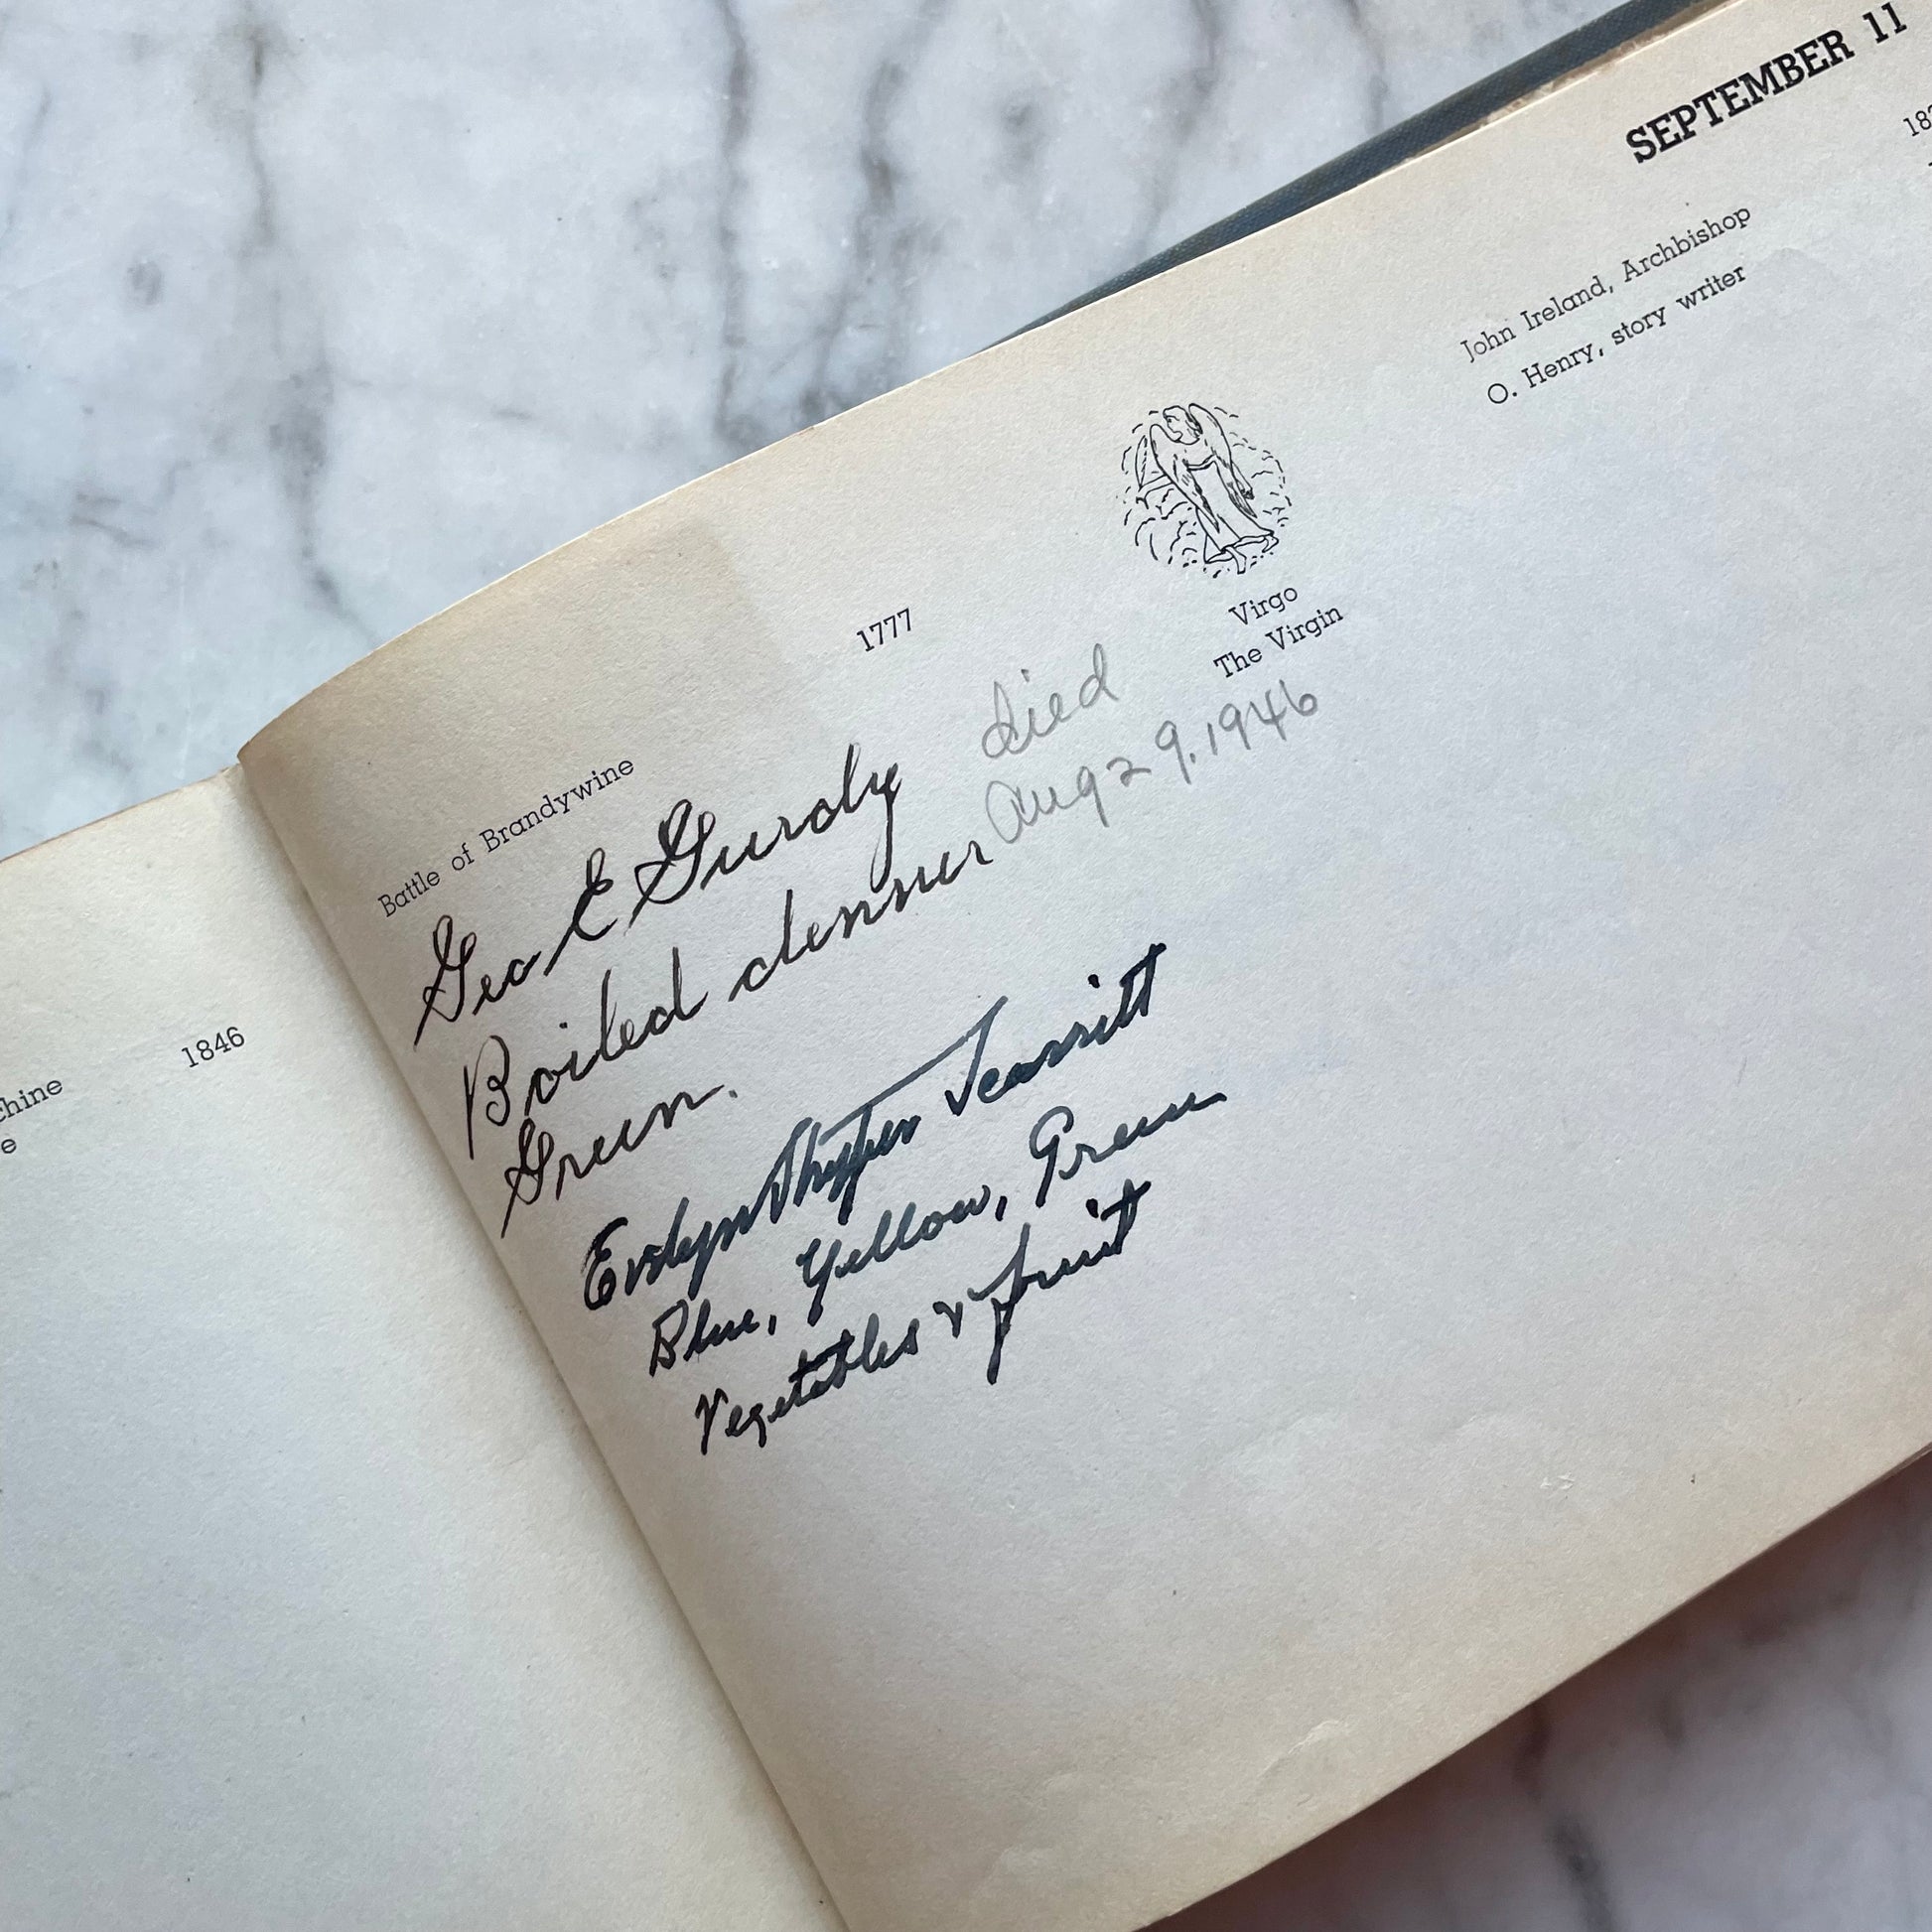 SEPTEMBER 11
John Ireland, Archbishop
O. Henry, story writer
Virgo
The Virgin
Battle of Brandywine 1777
Geo E Gurdy died
Aug 29, 1946
Boiled dinner
Green.
Evelyn
Blue, Yellow, Green
Vegetables & fruit
1846